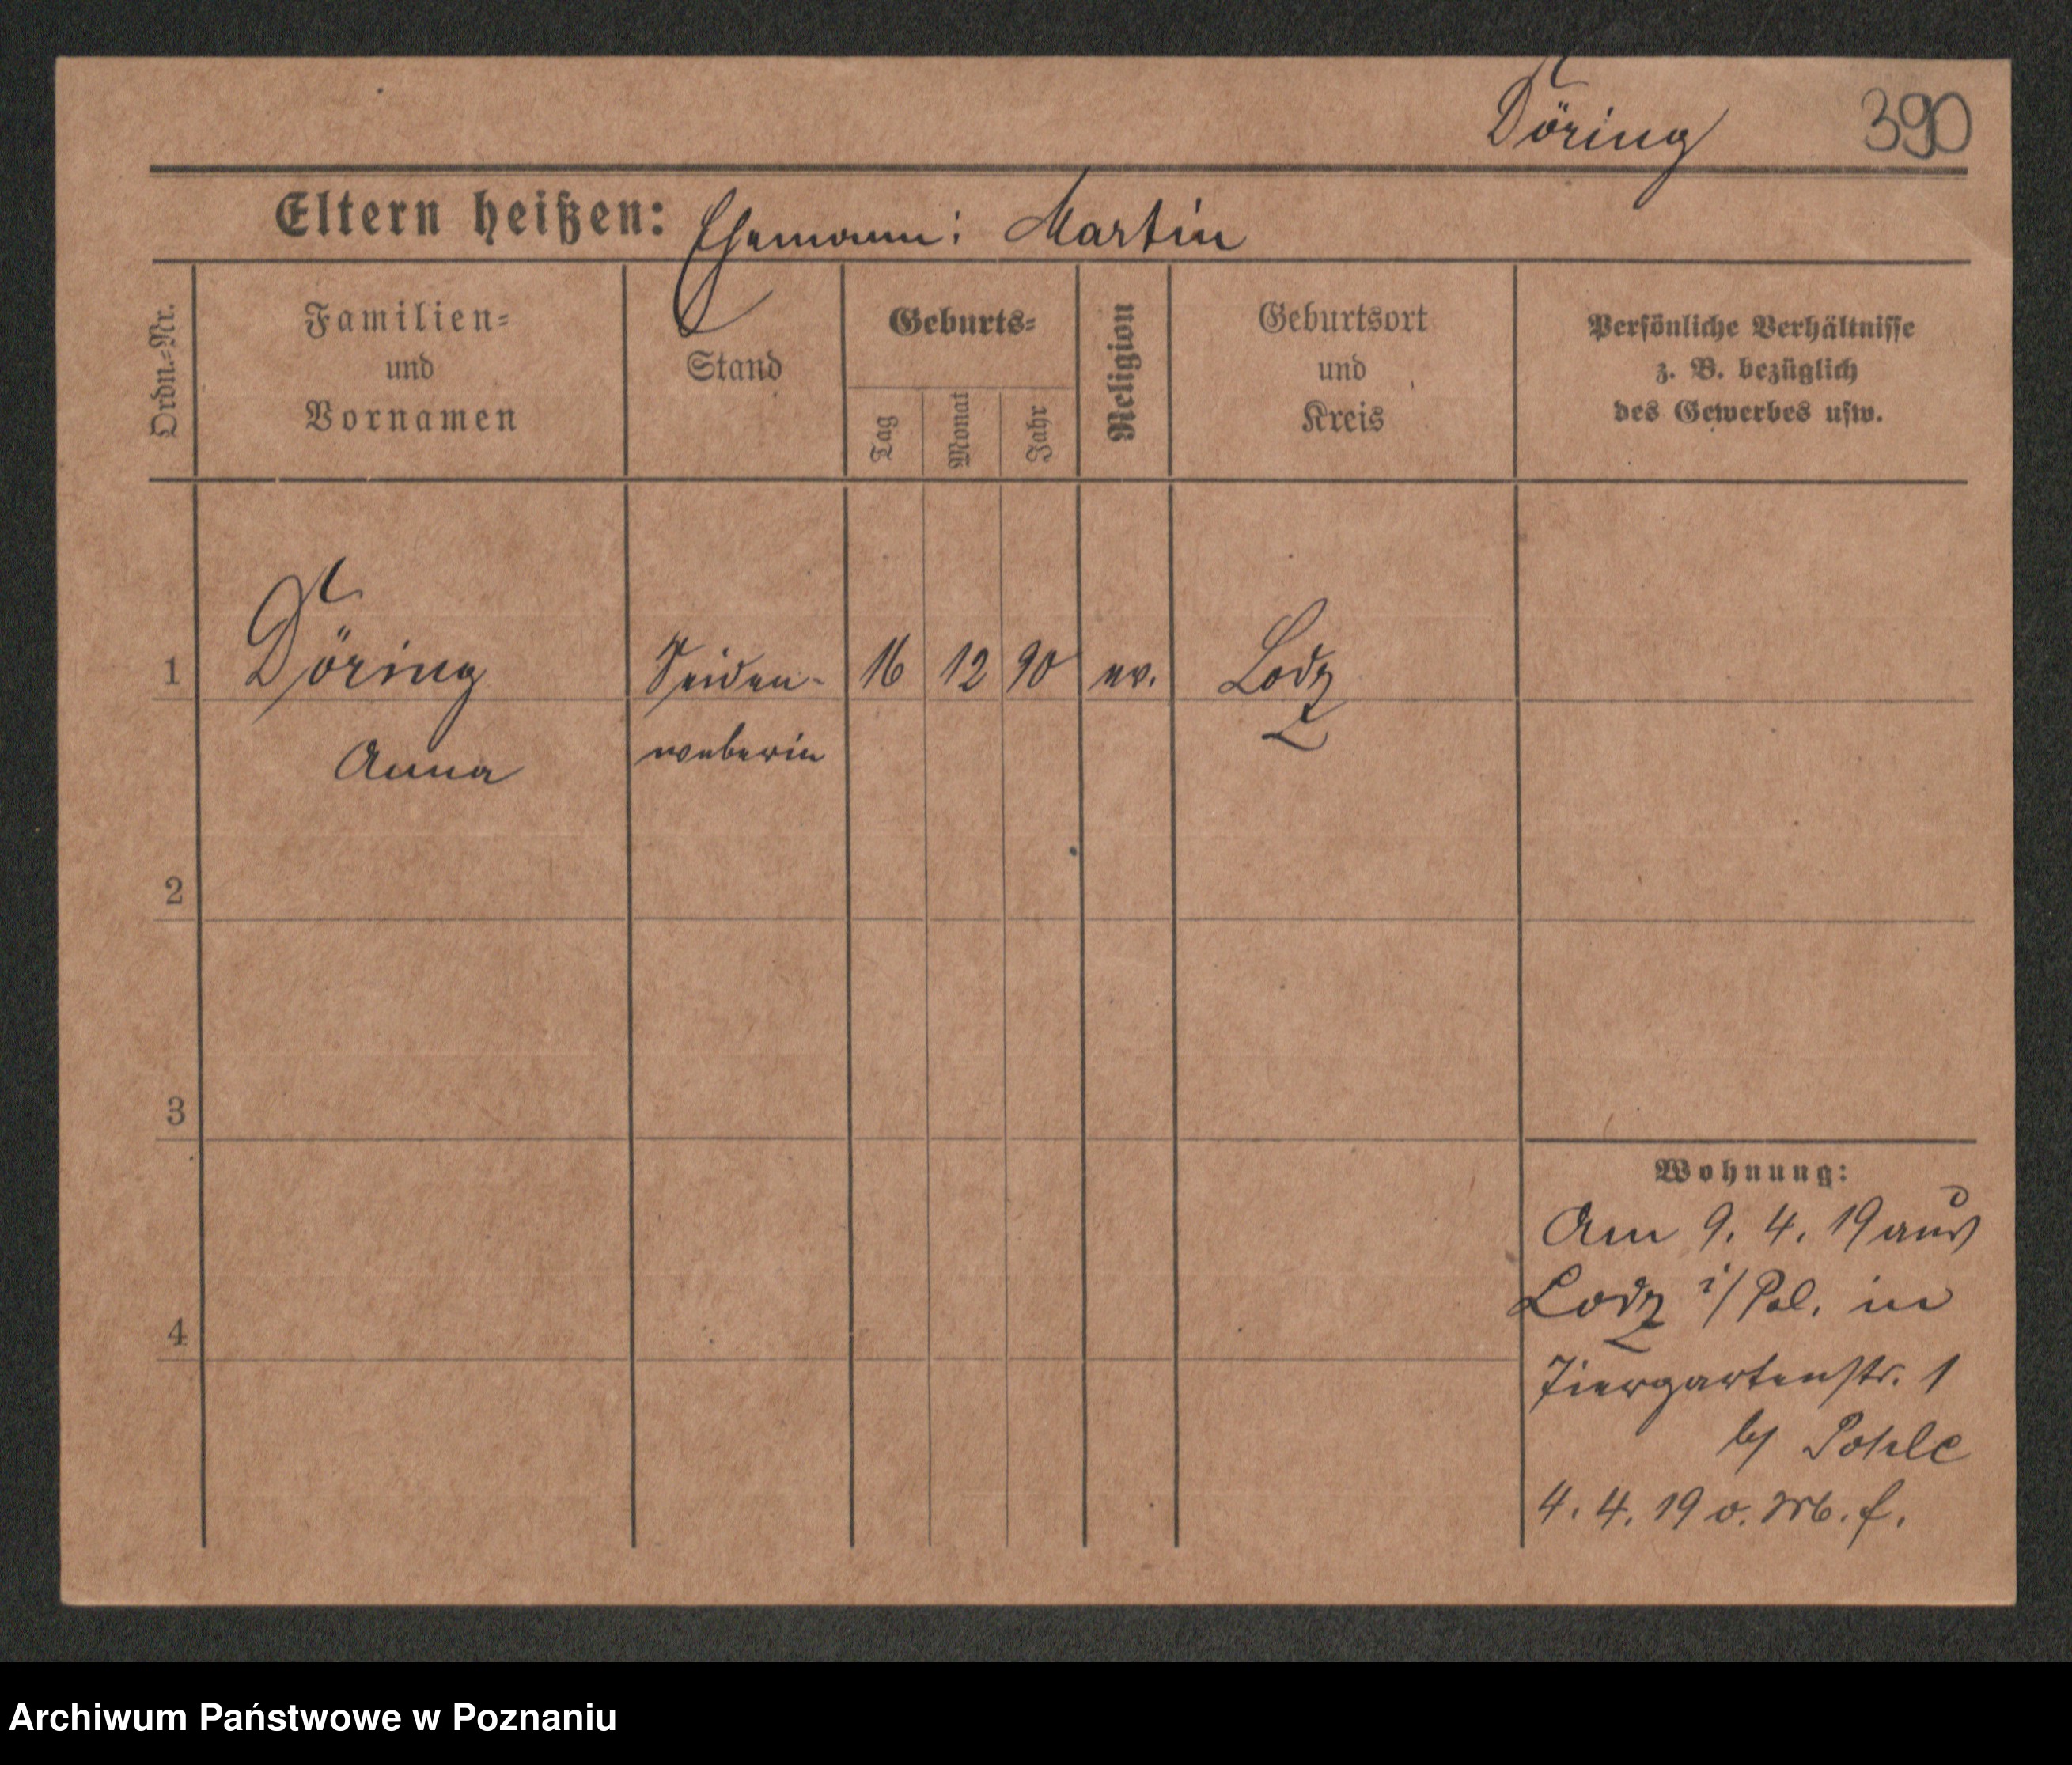 Döring 390
Eltern heißen: Ehemann: Martin
Ordn.-Nr.
Familien-
und
Vornamen
Stand
Geburts-
Tag
Monat
Jahr
Religion
Geburtsort
und
Kreis
Persönliche Verhältnisse
z. B. bezüglich
des Gewerbes usw.
1 Döring Seiden- 16 12 90 ev. Lodz
Anna weberin
2
3
4
Wohnung:
Am 9. 4. 19 aus
Lodz i/Pol. in
Tiergartenstr. 1
by Pohle
4. 4. 19 v.
Archiwum Państwowe w Poznaniu